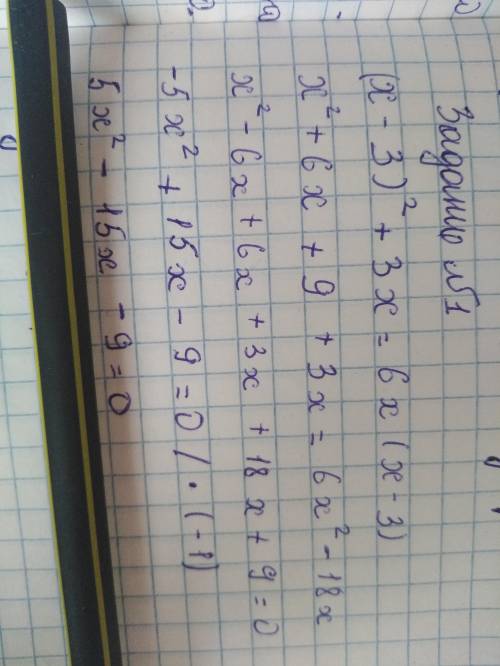 Задание №1
(x - 3)² + 3x = 6x (x - 3)
x² + 6x + 9 + 3x = 6x² - 18x
x² - 6x + 6x + 3x + 18x + 9 = 0
-5x² + 15x - 9 = 0 / · (-1)
5x² - 15x - 9 = 0